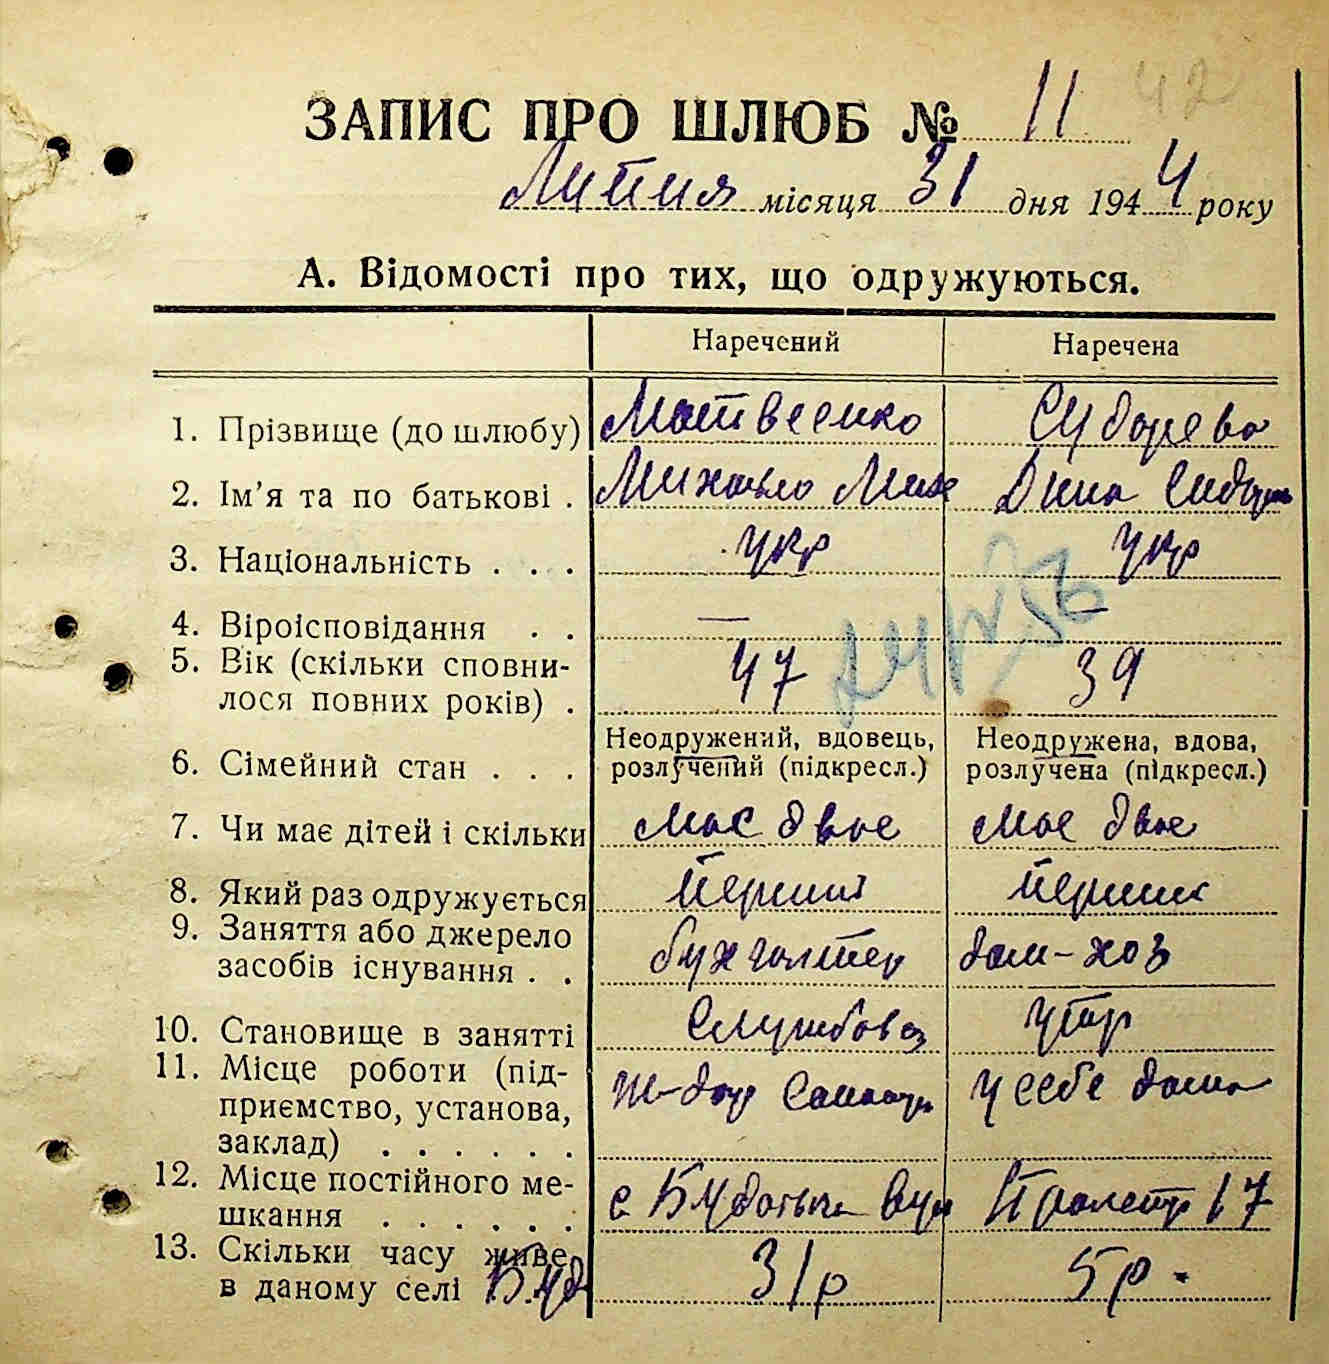 42
ЗАПИС ПРО ШЛЮБ № 11
Липня місяця 31 дня 1944 року
А. Відомості про тих, що одружуються.
Наречений Наречена
1. Прізвище (до шлюбу) Матвеенко Сударева
2. Ім'я та по батькові . Михайло Мих Дина
3. Національність . . . укр укр
4. Віроісповідання . . — —
5. Вік (скільки сповни-
лося повних років) . 47 39
Неодружений, вдовець, Неодружена, вдова,
6. Сімейний стан . . . розлучений (підкресл.) розлучена (підкресл.)
7. Чи має дітей і скільки має двое має двое
8. Який раз одружується Перший Перший
9. Заняття або джерело
засобів існування . . бухгалтер дом-хоз
10. Становище в занятті Службовец утр
11. Місце роботи (під-
приємство, установа, у себе дома
заклад) . . . . . .
12. Місце постійного ме-
шкання . . . . . . с вул Пролетр 17
13. Скільки часу живе
в даному селі Буд 31р 5р.